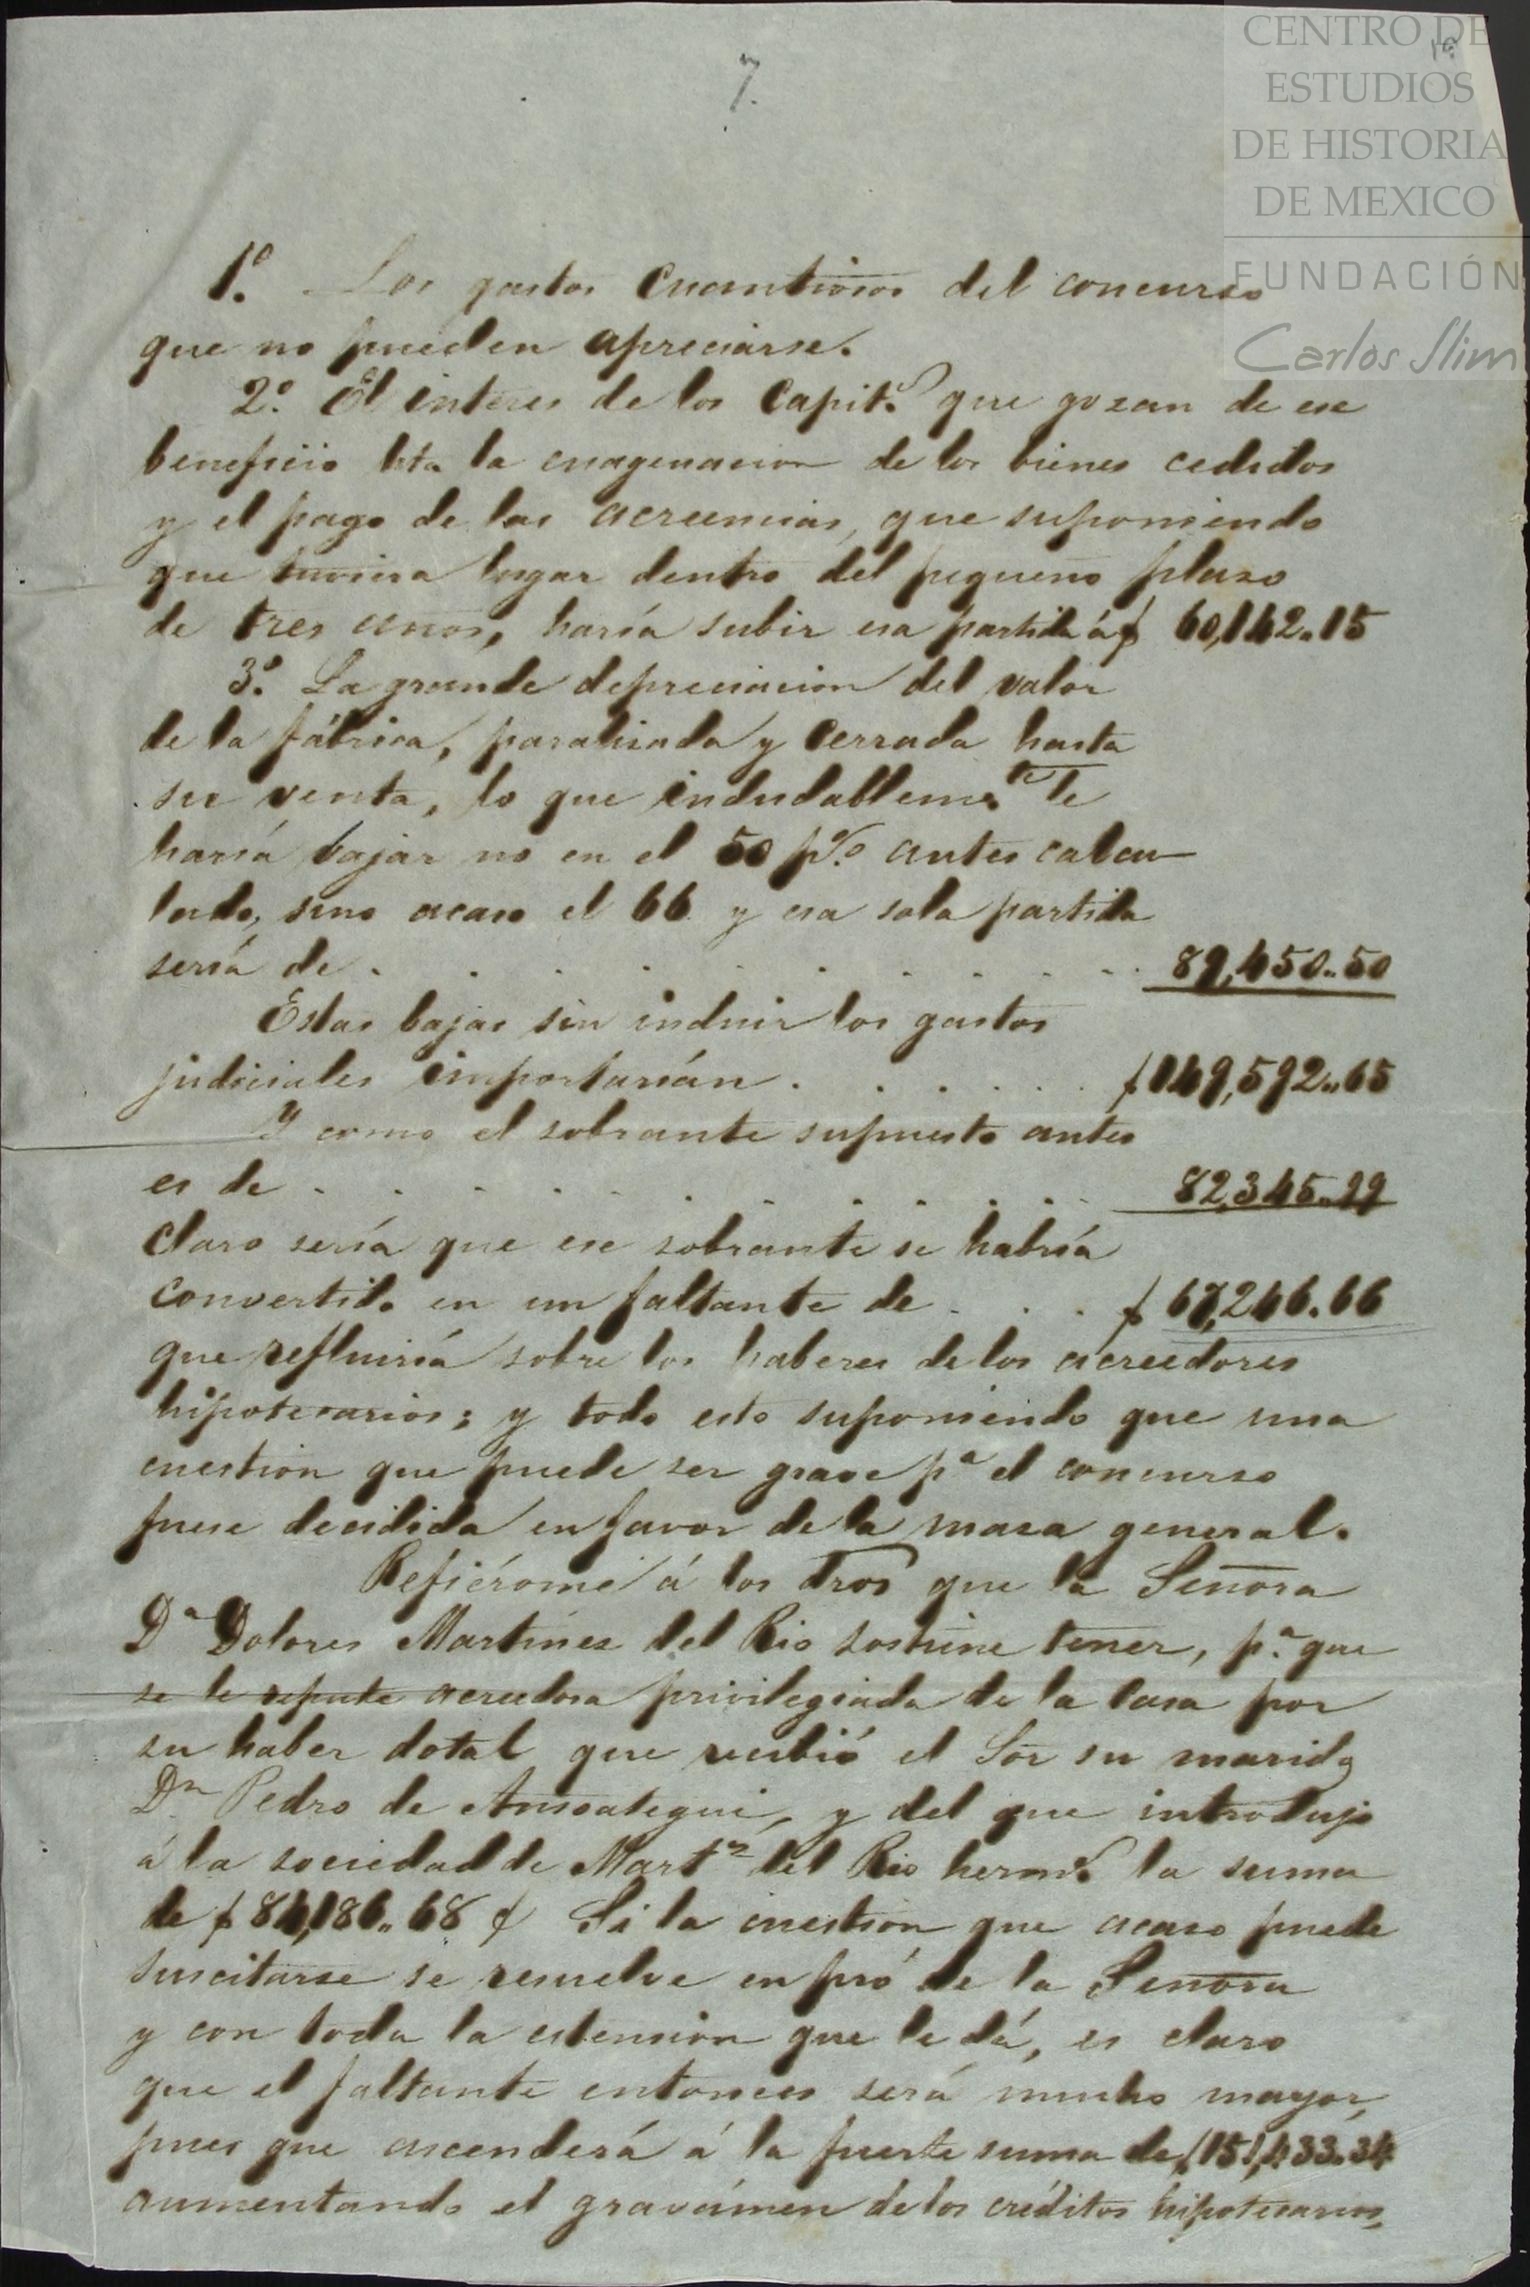 CENTRO DE
ESTUDIOS
DE HISTORIA
DE MEXICO
FUNDACIÓN
Carlos Slim
7.
1º. Los gastos cuantiosos del concurso
que no pueden apreciarse.
2º. El interes de los Capit.s que gozan de ese
beneficio hta. la enagenacion de los bienes cedidos
y el pago de las acreencias, que suponiendo
que tuviera lugar dentro del pequeño plazo
de tres años, haría subir esa partida á $ 60,142.15
3º. La grande depreciacion del valor
de la fábrica, paralizada y cerrada hasta
su venta, lo que indudableme.te le
haría bajar no en el 50 p% antes calcu-
lado, sino acaso el 66 y esa sola partida
sería de . . . . . . . . . . 89,450..50
Estas bajas sin incluir los gastos
judiciales importarían . . . . . . $ 149,592..65
Y como el sobrante supuesto antes
es de . . . . . . . . . . . 82,345..99
claro sería que ese sobrante se habría
convertido en un faltante de . . . $ 67,246.66
que refluiría sobre los haberes de los acreedores
hipotecarios; y todo esto suponiendo que una
cuestion que puede ser grave pª el concurso
fuese decidida en favor de la masa general.
Refiérome á los dros que la Señora
Dª Dolores Martinez del Rio sostiene tener, p.ª que
se le repute acreedora privilegiada de la casa por
su haber dotal que recibió el Sor su marido
Dn Pedro de Ansoategui, y del que introdujo
á la sociedad de Martz del Rio herms. la suma
de $ 84,186..68 ¢ Si la cuestion que acaso puede
suscitarse se resuelve en pró de la Señora
y con toda la estension que le dá, es claro
que el faltante entonces será mucho mayor,
pues que ascenderá á la fuerte suma de $151,433.34
aumentando el gravámen de los créditos hipotecarios,